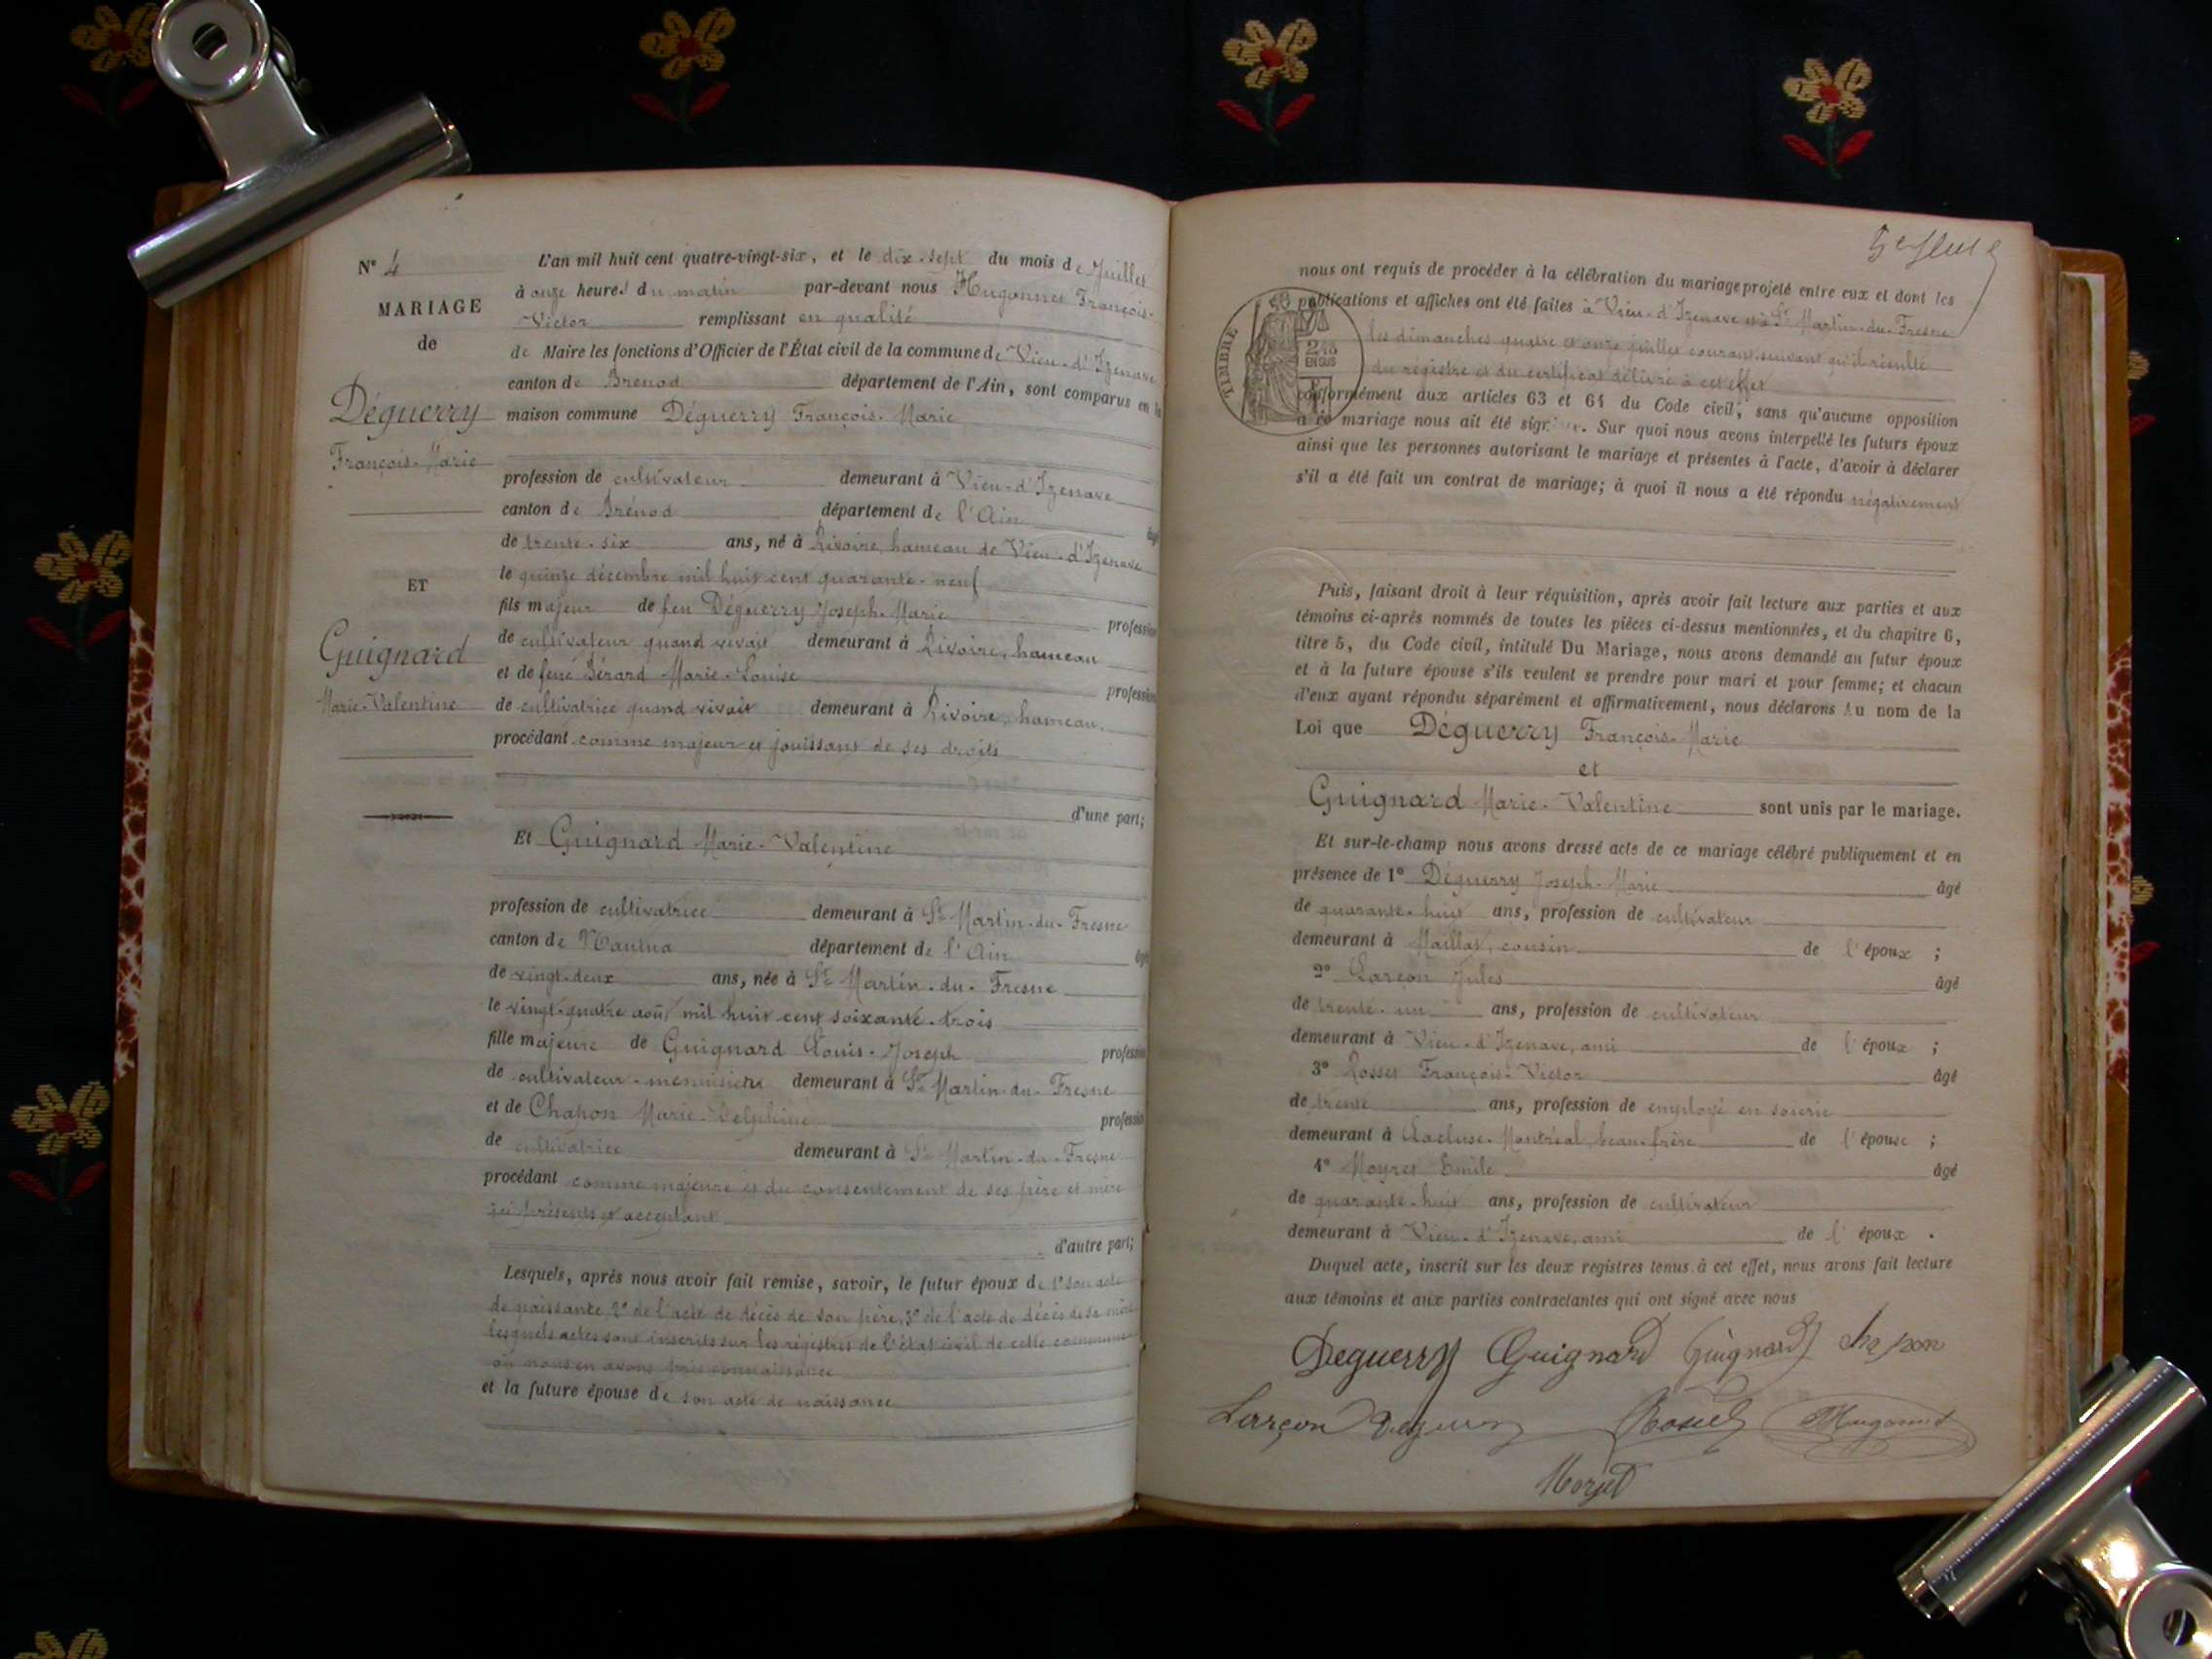 N° 4
MARIAGE
de
Déguerry
François-Marie
ET
Guignard
Marie-Valentine
L'an mil huit cent quatre-vingt-six, et le dix-sept du mois de Juillet
à onze heures du matin par-devant nous Hugonnet François-
Victor remplissant en qualité
de Maire les fonctions d'Officier de l'État civil de la commune de Vieu-d'Izenave
canton de Brénod département de l'Ain, sont comparus en la
maison commune Déguerry François-Marie
profession de cultivateur demeurant à Vieu-d'Izenave
canton de Brénod département de l'Ain âgé
de trente-six ans, né à Rivoire, hameau de Vieu-d'Izenave
le quinze décembre mil huit cent quarante-neuf
fils majeur de feu Déguerry Joseph-Marie profession
de cultivateur quand vivait demeurant à Rivoire, hameau
et de feue Bérard Marie-Louise profession
de cultivatrice quand vivait demeurant à Rivoire, hameau.
procédant comme majeur et jouissant de ses droits
d'une part;
Et Guignard Marie-Valentine
profession de cultivatrice demeurant à St Martin-du-Fresne
canton de Nantua département de l'Ain âgée
de vingt-deux ans, née à St Martin-du-Fresne
le vingt-quatre août mil huit cent soixante-trois
fille majeure de Guignard Louis-Joseph profession
de cultivateur-menuisier demeurant à St Martin-du-Fresne
et de Chapon Marie-Delphine profession
de cultivatrice demeurant à St Martin-du-Fresne
procédant comme majeure et du consentement de ses père et mère
ici présents et acceptant
d'autre part;
Lesquels, après nous avoir fait remise, savoir, le futur époux de 1° son acte
de naissante, 2° de l'acte de décès de son père, 3° de l'acte de décès de sa mère
lesquels actes sont inscrits sur les régistres de l'état civil de cette commune
où nous en avons pris connaissance
et la future épouse de son acte de naissance
nous ont requis de procéder à la célébration du mariage projeté entre eux et dont les
publications et affiches ont été faites à Vieu-d'Izenave et à St Martin-du-Fresne
TIMBRE
les dimanches quatre et onze juillet courant, suivant qu'il résulte
du régistre et du certificat délivré à cet effet
conformément aux articles 63 et 64 du Code civil, sans qu'aucune opposition
à ce mariage nous ait été signifiée. Sur quoi nous avons interpellé les futurs époux
ainsi que les personnes autorisant le mariage et présentes à l'acte, d'avoir à déclarer
s'il a été fait un contrat de mariage; à quoi il nous a été répondu négativement
Puis, faisant droit à leur réquisition, après avoir fait lecture aux parties et aux
témoins ci-après nommés de toutes les pièces ci-dessus mentionnées, et du chapitre 6,
titre 5, du Code civil, intitulé Du Mariage, nous avons demandé au futur époux
et à la future épouse s'ils veulent se prendre pour mari et pour femme; et chacun
d'eux ayant répondu séparément et affirmativement, nous déclarons Au nom de la
Loi que Déguerry François-Marie
et
Guignard Marie-Valentine sont unis par le mariage.
Et sur-le-champ nous avons dressé acte de ce mariage célébré publiquement et en
présence de 1° Déguerry Joseph-Marie âgé
de quarante-huit ans, profession de cultivateur
demeurant à Maillat, cousin de l'époux ;
2° Larçon Jules âgé
de trente-un ans, profession de cultivateur
demeurant à Vieu-d'Izenave, ami de l'époux ;
3° Rosset François-Victor âgé
de trente ans, profession de employé en soierie
demeurant à Lacluse-Montréal, beau-frère de l'épouse ;
4° Moyret Emile âgé
de quarante-huit ans, profession de cultivateur
demeurant à Vieu-d'Izenave, ami de l'époux .
Duquel acte, inscrit sur les deux registres tenus à cet effet, nous avons fait lecture
aux témoins et aux parties contractantes qui ont signé avec nous
Deguerry Guignard Guignard Chapon
Larçon Deguerry Rosset Hugonnet